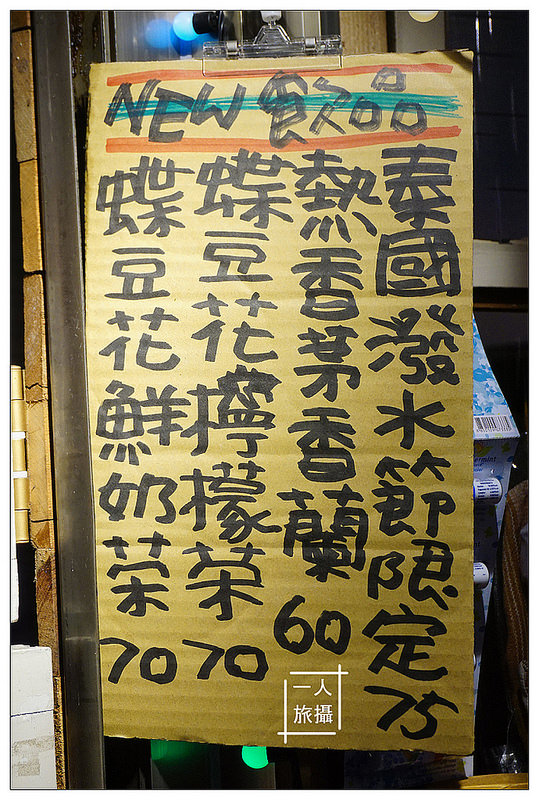 NEW 飲品
泰國潑水節限定 75
熱香茅香蘭 60
蝶豆花檸檬茶 70
蝶豆花鮮奶茶 70
一人
旅攝